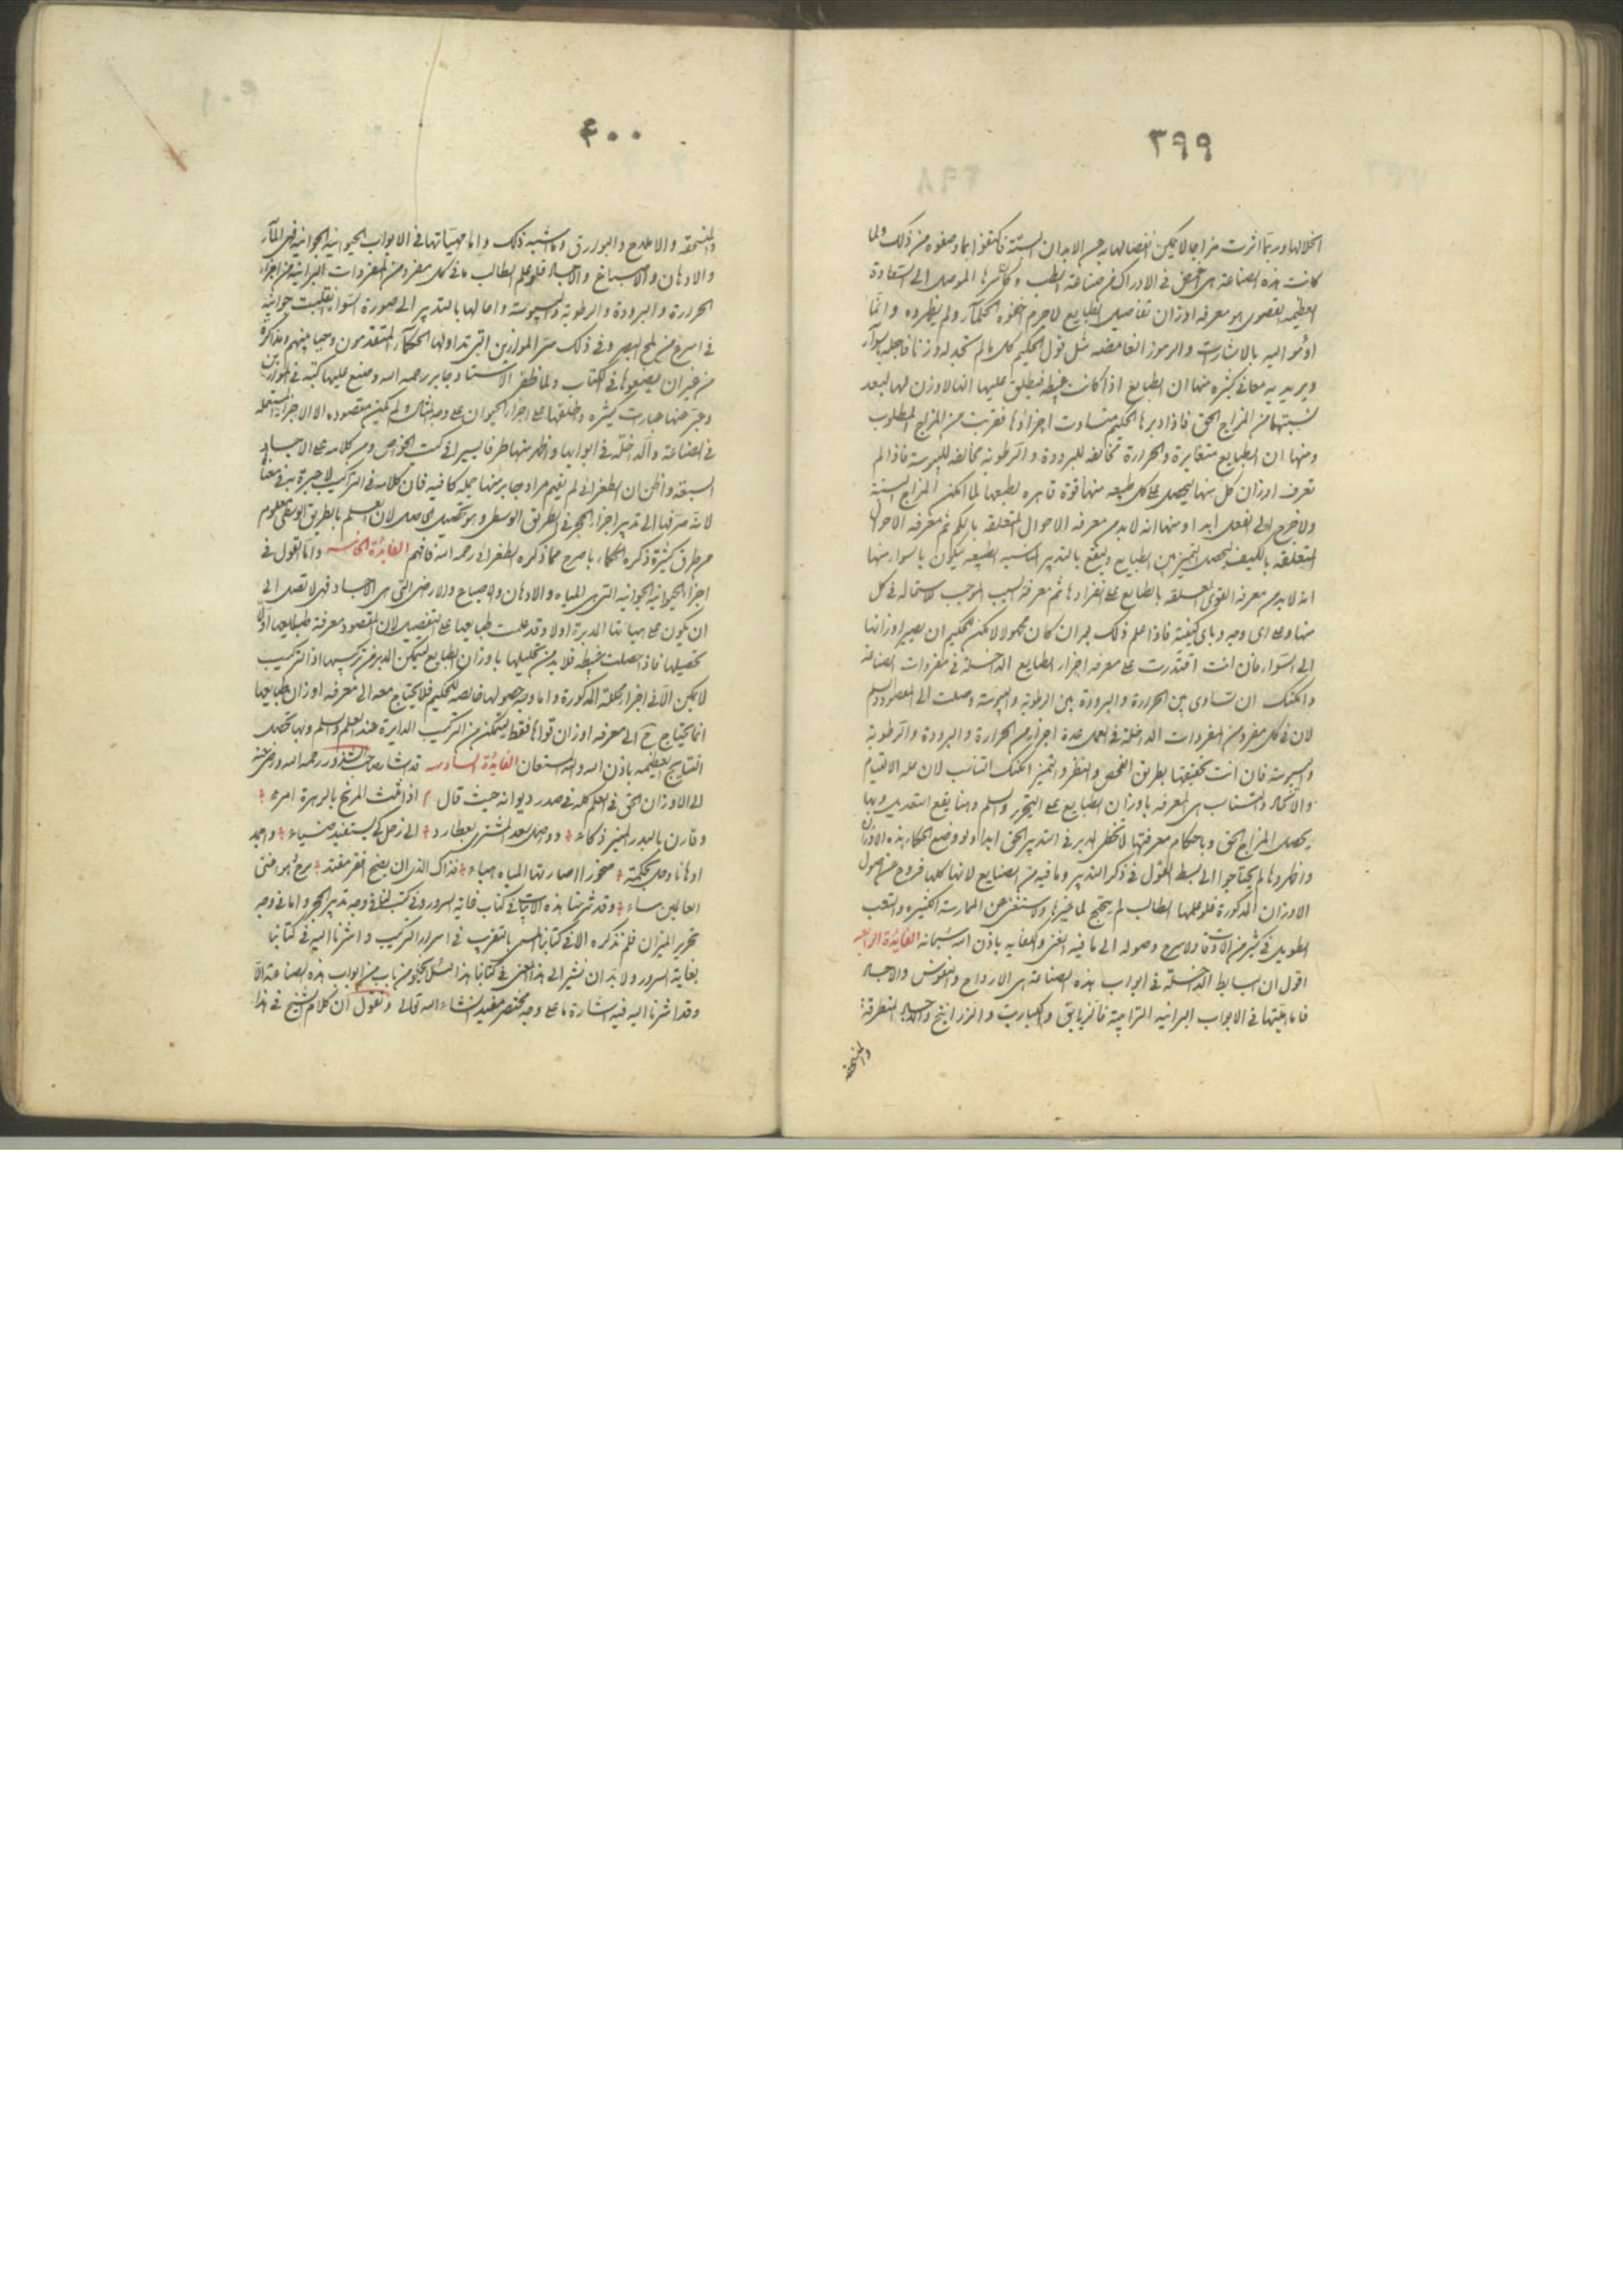 ٣٩٩
انحلالها وربما اثرت مزاجا لا يمكن انفصالها به عن الابدان البتة فاكتفوا بما وصفوه من ذلك ولما
كانت هذه الصناعة هى اغمض فى الادراك من صناعة الطب وكان علمها الموصل الى السعادة
العظيمه القصوى هو معرفه اوزان تفاصيل الطبايع لا جرم اخفوه الحكمآء ولم يظهروه وانما
اومؤا اليه بالاشارات والرموز الغامضه مثل قول الحكيم كل ما لم تجد له وزنا فاجعله سوآء
ويريد به معانى كثيره منها ان الطبايع اذا كانت غبيطه فيطلق عليها انها لا وزن لها لبعد
نسبتها من المزاج الحق فاذا دبرها الحكيم تساوت اجزاؤها فقربت من المزاج المطلوب
ومنها ان الطبايع متغايرة والحرارة مخالفه للبرودة والرطوبه مخالفه لليبوسه فاذا لم
تعرف اوزان كل منها ليحصل على كل طبيعه منها قوة قاهره لطبعها لما امكن المزاج البتة
ولا خرج الى الفعل ابدا ومنها انه لا بد من معرفه الاحوال المتعلقه بالكم ثم معرفه الاحوال
المتعلقه بالكيف ليحصل التميز بين الطبايع ويقع بالتدبير المناسبه الطبيعه فيكون بالسواء منها
انه لا بد من معرفه القوى المتعلقه بالطبايع على انفرادها ثم معرفة السبب الموجب لاستحاله فى كل
منها وعلى اى وجه وباى كيفية فاذا علم ذلك بعد ان كان مجهولا لا يمكن للحكيم ان يصير اوزانها
الى السواء فان انت اقتدرت على معرفه اجزاء الطبايع الداخلة فى مفردات الصناعة
وامكنك ان تساوى بين الحرارة والبرودة بين الرطوبة واليبوسة وصلت الى المقصود والسلم
لان فى كل مفرد من المفردات الداخلة فى العمل عدة اجزاء من الحرارة والبرودة والرطوبة
واليبوسة فان انت تحققتها بطريق الفحص والنظر والتميز امكنك التناسب لان علة الالتيام
والاتحاد والتناسب هى المعرفه باوزان الطبايع على التحرير والسلم وهنا يقع التعديل وبها
يحصل المزاج الحق وباحكام معرفتها لا يخطى المدبر فى التدبير الحق ابدا ولو وضع الحكماء هذه الاوزان
واظهروها لم يحتاجوا الى بسط القول فى ذكر التدبير وما فيه من الصنايع لانها كلها فروع عن اصول
الاوزان المذكورة فلو علمها الطالب لم يحتج لما غيرها ولاستغنى عن الممارسة الكثيره والتعب
الطويل فى كثير من الاوقات ولاسرع وصوله الى ما فيه الغنى والكفايه باذن الله سبحانه الفايدة الرابعة
اقول ان البسايط الداخلة فى ابواب هذه الصناعة هى الارواح والنفوس والاجساد
فاما هيئتها فى الابواب البرانيه الترابية فالزيابق والكباريت والزرانيخ والاجساد المنطرقة
والمنسحقه
٤٠٠
والمنسحقه والاملاح والبوارق وما اشبه ذلك واما هيئاتها فى الابواب الحيوانيه الجوانية فهى المآء
والادهان والاصباغ والاجساد فلو علم الطالب ما فى كل مفرد من المفردات البرانية من اجزاء
الحرارة والبرودة والرطوبة واليبوسة وامالها بالتدبير الى صورة السواء انقلبت جوانية
فى اسرع من لمح البصر وفى ذلك سر الموازين التى تداولها الحكمآء المتقدمون وحيا بينهم ومذاكرة
من غير ان يضعوها فى الكتاب ولما ظفر الاستاد جابر رحمه الله وضع عليها كتبه فى الموازين
وعبر عنها بعبارات كثيره واطلقها على اجزاء الحيوان على وجه المثال ولم يكن مقصوده الا الاجزاء المستعمله
فى الصناعة والداخلة فى ابوابها واظهر منها طرفا يسيرا فى كتب الخواص ومن كلامه على الاجساد
السبعة واظن ان الطغرائى لم يفهم مراد جابر منها جملة كافيه فان كلامه فى التراكيب لا خبرة به فى معناها
لانه صرفها الى تدبير اجزاء الحجر فى الطريق الوسطى وهو تحصيل الحاصل لان العلم بالطريق الوسطى معلوم
من طرق كثيرة ذكره الحكماء باصرح مما ذكره الطغرائى رحمه الله فافهم الفايدة الخامسه وانا نقول فى
اجزاء الحيوانية الجوانيه التى هى المياه والادهان والاصباغ والارض التى هى الاجساد فهى لا تصل الى
ان يكون على هيئاتنا المدبرة اولا وقد علمت طبايعها على التفصيل لان المقصود معرفة طبايعها اولا
تحصيلها فاذا حصلت غبيطه فلا بد من تحليلها باوزان الطبايع ليتمكن المدبر من تركيبها اذ التركيب
لا يمكن الا فى اجزاء محللة المذكورة واما وجه حصولها خالصه للحكيم فلا يحتاج معه الى معرفه اوزان طبايعها
انما يحتاج ح الى معرفه اوزان قواها فقط ليتمكن من التركيب الدايرة عند العلم والسلم وبها تحصل
النتايج العظيمه باذن الله والله المستعان الفايدة السادسه قد اشار صاحب الشذور رحمه الله ورضى عنه
الى الاوزان الحق فى العلم كله فى صدر ديوانه حيث قال اذا ثلث المريخ بالزهرة امرء
وقارن بالبدر المنير ذكاء ووصل سعد المشترى بعطارد الى زحل كى يستفيد ضياء واجمد
ادهانا وحل بحكمة صخورا اصارتها المياه هباء فذاك الذى ان يضح فقر مفتد مع هو افنى
العالمين مساء وقد شرحنا هذه الابيات فى كتاب غاية السرور وفى كتب لنا فى وجه تدبير الحجر واما فى وجه
تحرير الميزان فلم نذكره الا فى كتابنا المسمى بالتقرب فى اسرار التركيب واشرنا اليه فى كتابنا
بغاية السرور ولا بد ان نشير الى هذا المعنى فى كتابنا هذا لئلا يخلو من باب من ابواب هذه الصناعة الا
وقد اشرنا اليه فيه اشارة ما على وجه مختصر مفيد انشاء الله تعالى ونقول ان كلام الشيخ فى هذا